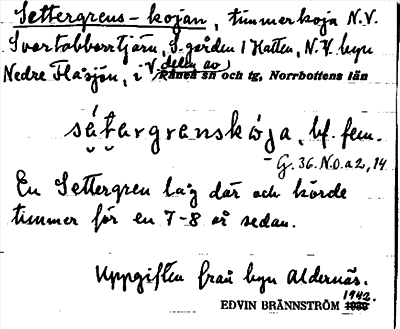 Settergrens-kojan, timmerkoja N.V.
Svartabborrtjärn, S. gården 1 Hatten, N.V. byn
Nedre Flåsjön, i V. delen av
Råneå sn och tg, Norrbottens län
sätargrenskója, bf. fem.
- G. 36. N.O. a 2, 14
En Settergren låg där och körde
timmer för en 7-8 år sedan.
Uppgiften från byn Aldernäs.
1942.
EDVIN BRÄNNSTRÖM